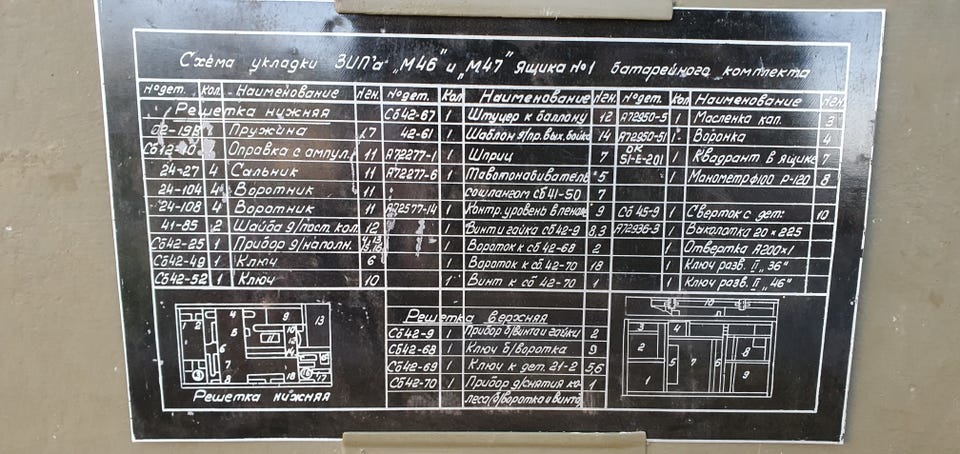 Схема укладки ЗИП'а „М46" и „М47" Ящика №1 батарейного комплекта
№дет. кол. Наименование №гн. №дет. Кол Наименование №гн. №дет. Кол Наименование №гн.
Решетка нижняя Сб42-67 1 Штуцер к баллону 12 А72950-5 1 Масленка кап. 3
02-19В Пружина 7 42-61 1 Шаблон д/пр. вых. бойка 14 А72950-51 1 Воронка 4
Сб12-40 Оправка с ампул. 11 А72277-1 1 Шприц 7 ОК 51-Е-201 1 Квадрант в ящике 7
24-27 4 Сальник 11 А72277-6 1 Тавотонабиватель 5 1 Манометр ф100 Р-120 8
24-104 4 Воротник 11 со шлангом сб 41-50 7
24-108 4 Воротник 11 А72577-14 1 Контр. уровень в пенале 9 Сб 45-9 1 Сверток с дет. 10
41-85 2 Шайба д/паст. кол. 12 1 Винт и гайка сб 42-9 8,3 А72936-3 1 Выколотка 20×225
Сб42-25 1 Прибор д/наполн. 1 Вороток к сб 42-68 2 1 Отвертка А200×1
Сб42-49 1 Ключ 6 1 Вороток к сб. 42-70 18 1 Ключ разв. II „36"
Сб42-52 1 Ключ 10 1 Винт к сб 42-70 1 1 Ключ разв. II „46"
Решетка верхняя
Сб42-9 1 Прибор б/винта и гайки 2
Сб42-68 1 Ключ б/воротка 9
Сб42-69 1 Ключ к дет. 21-2 5,6
Сб42-70 1 Прибор д/снятия ко- 1
леса/б/воротка и винта/
Решетка нижняя